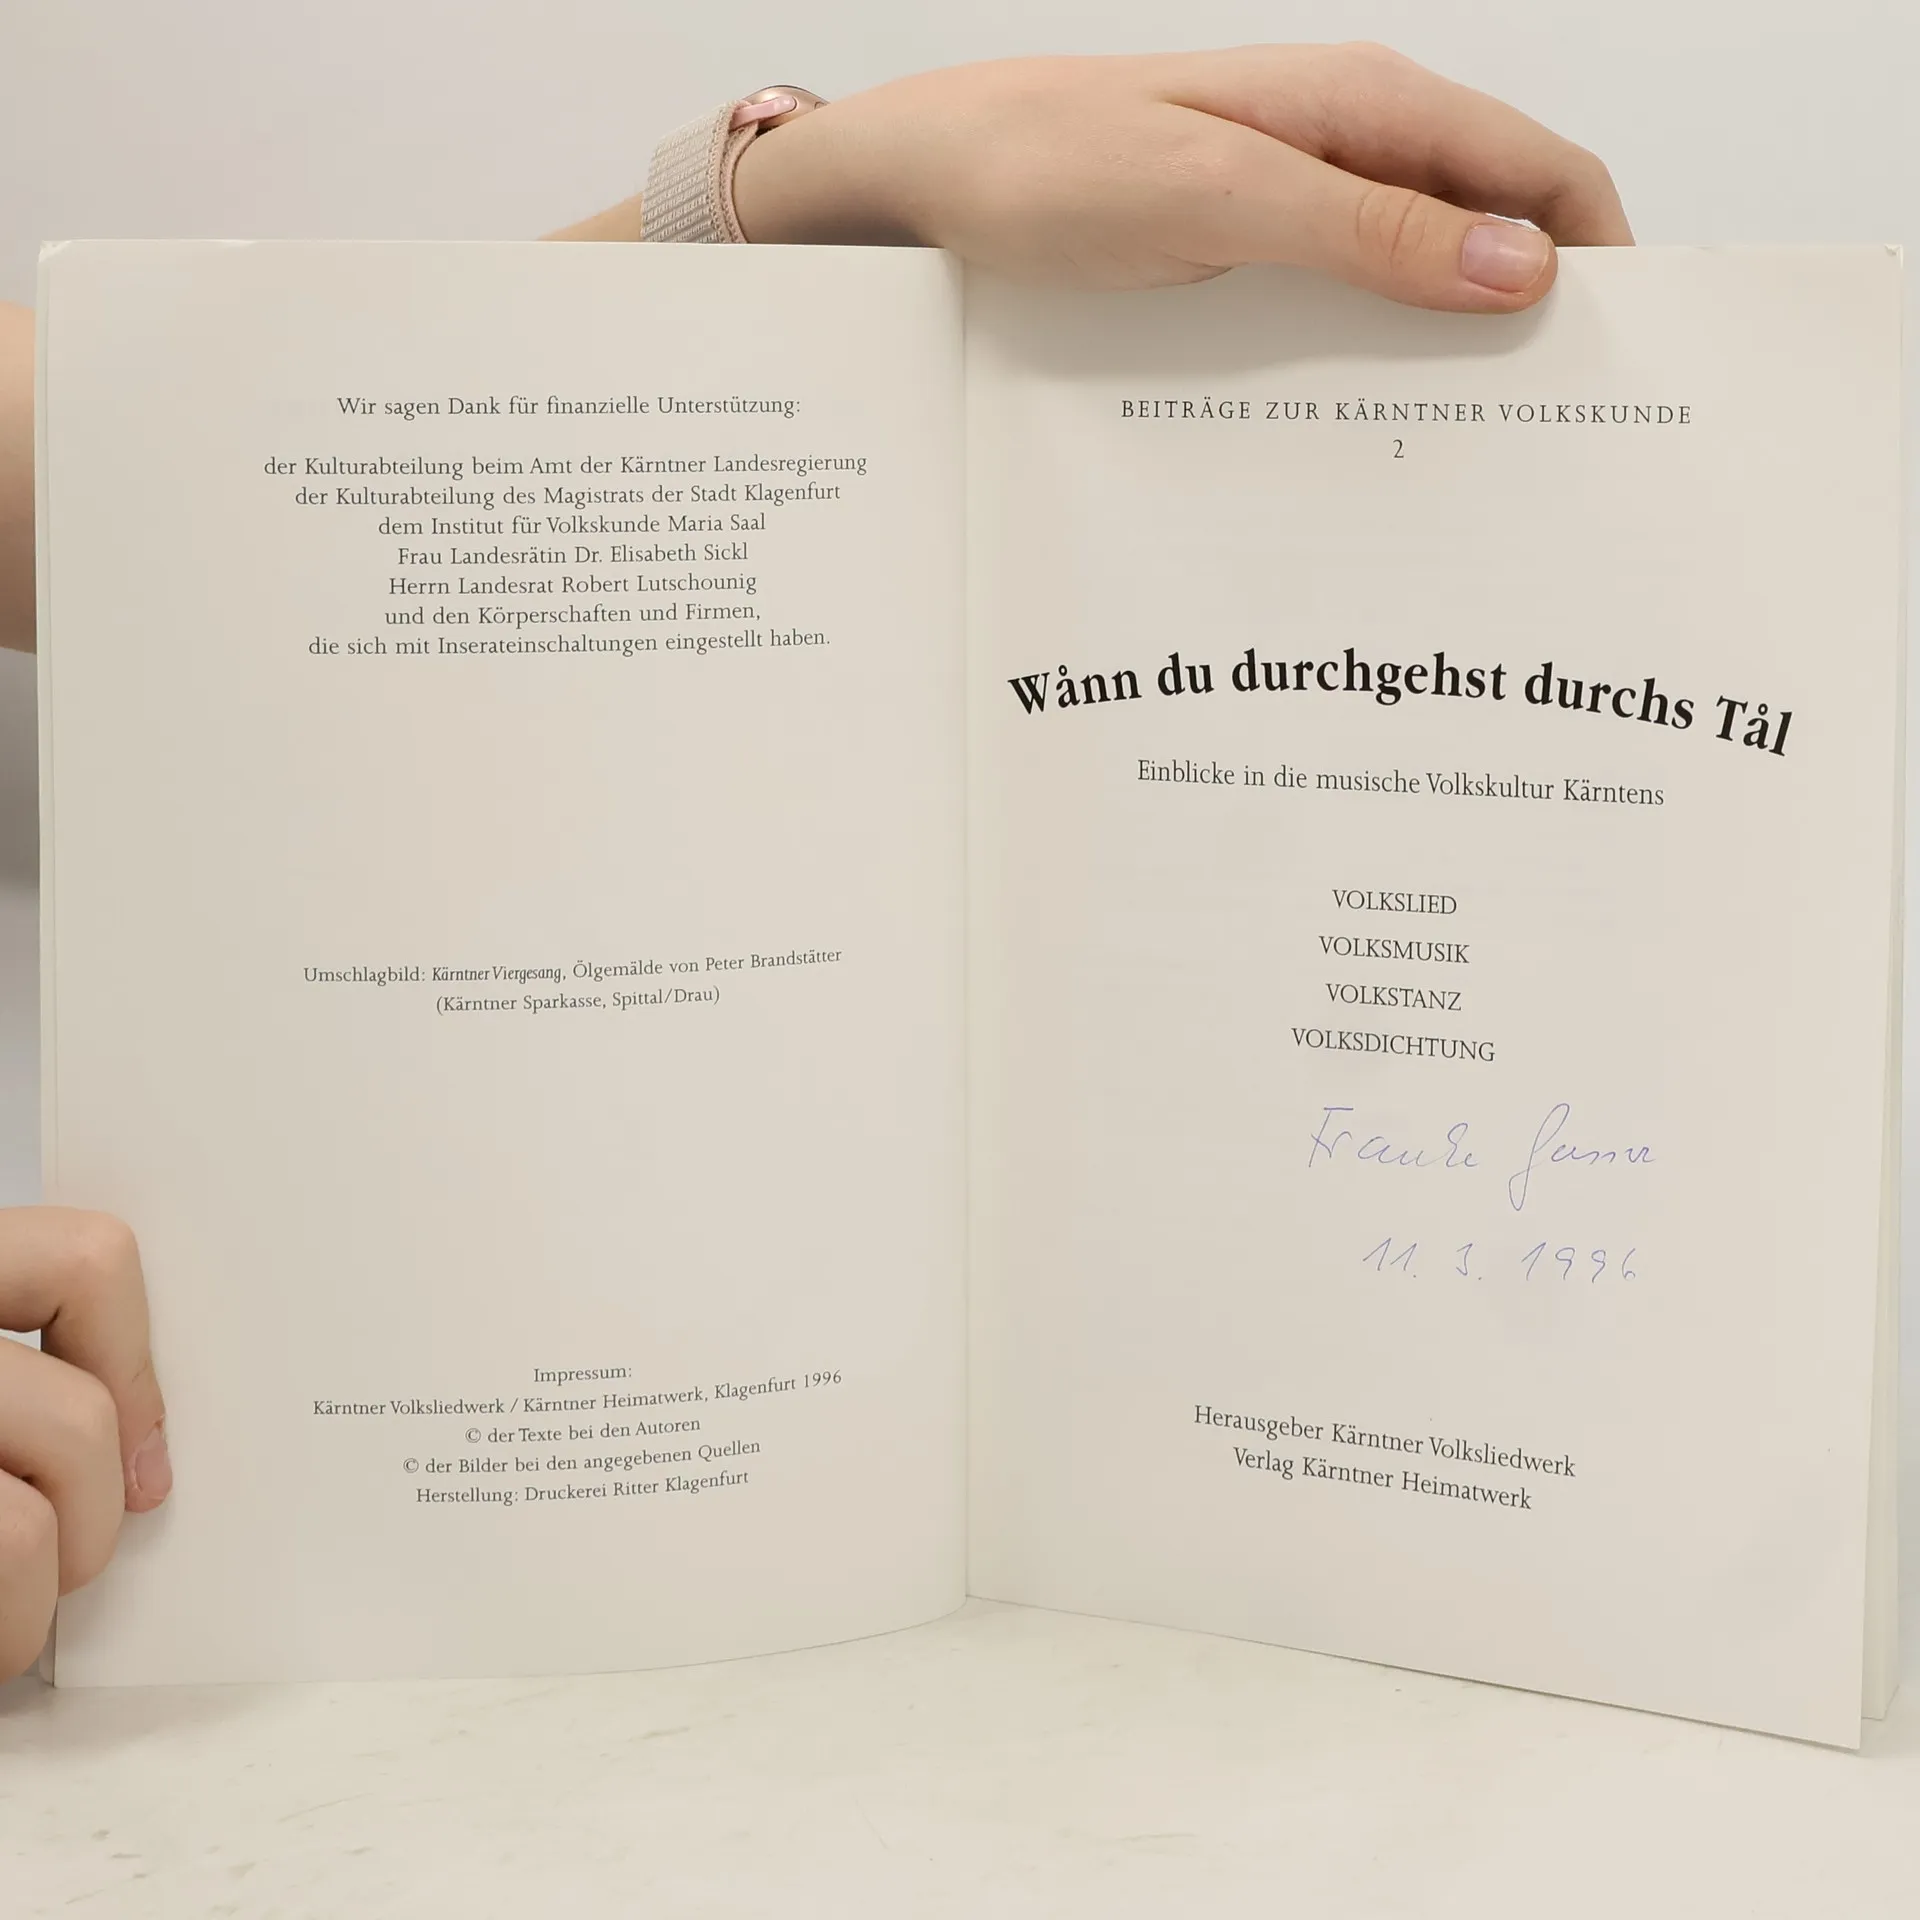 Wir sagen Dank für finanzielle Unterstützung:
der Kulturabteilung beim Amt der Kärntner Landesregierung
der Kulturabteilung des Magistrats der Stadt Klagenfurt
dem Institut für Volkskunde Maria Saal
Frau Landesrätin Dr. Elisabeth Sickl
Herrn Landesrat Robert Lutschounig
und den Körperschaften und Firmen,
die sich mit Inserateinschaltungen eingestellt haben.
Umschlagbild: Kärntner Viergesang, Ölgemälde von Peter Brandstätter
(Kärntner Sparkasse, Spittal/Drau)
Impressum:
Kärntner Volksliedwerk / Kärntner Heimatwerk, Klagenfurt 1996
© der Texte bei den Autoren
© der Bilder bei den angegebenen Quellen
Herstellung: Druckerei Ritter Klagenfurt
BEITRÄGE ZUR KÄRNTNER VOLKSKUNDE
2
Wånn du durchgehst durchs Tål
Einblicke in die musische Volkskultur Kärntens
VOLKSLIED
VOLKSMUSIK
VOLKSTANZ
VOLKSDICHTUNG
11. 3. 1996
Herausgeber Kärntner Volksliedwerk
Verlag Kärntner Heimatwerk